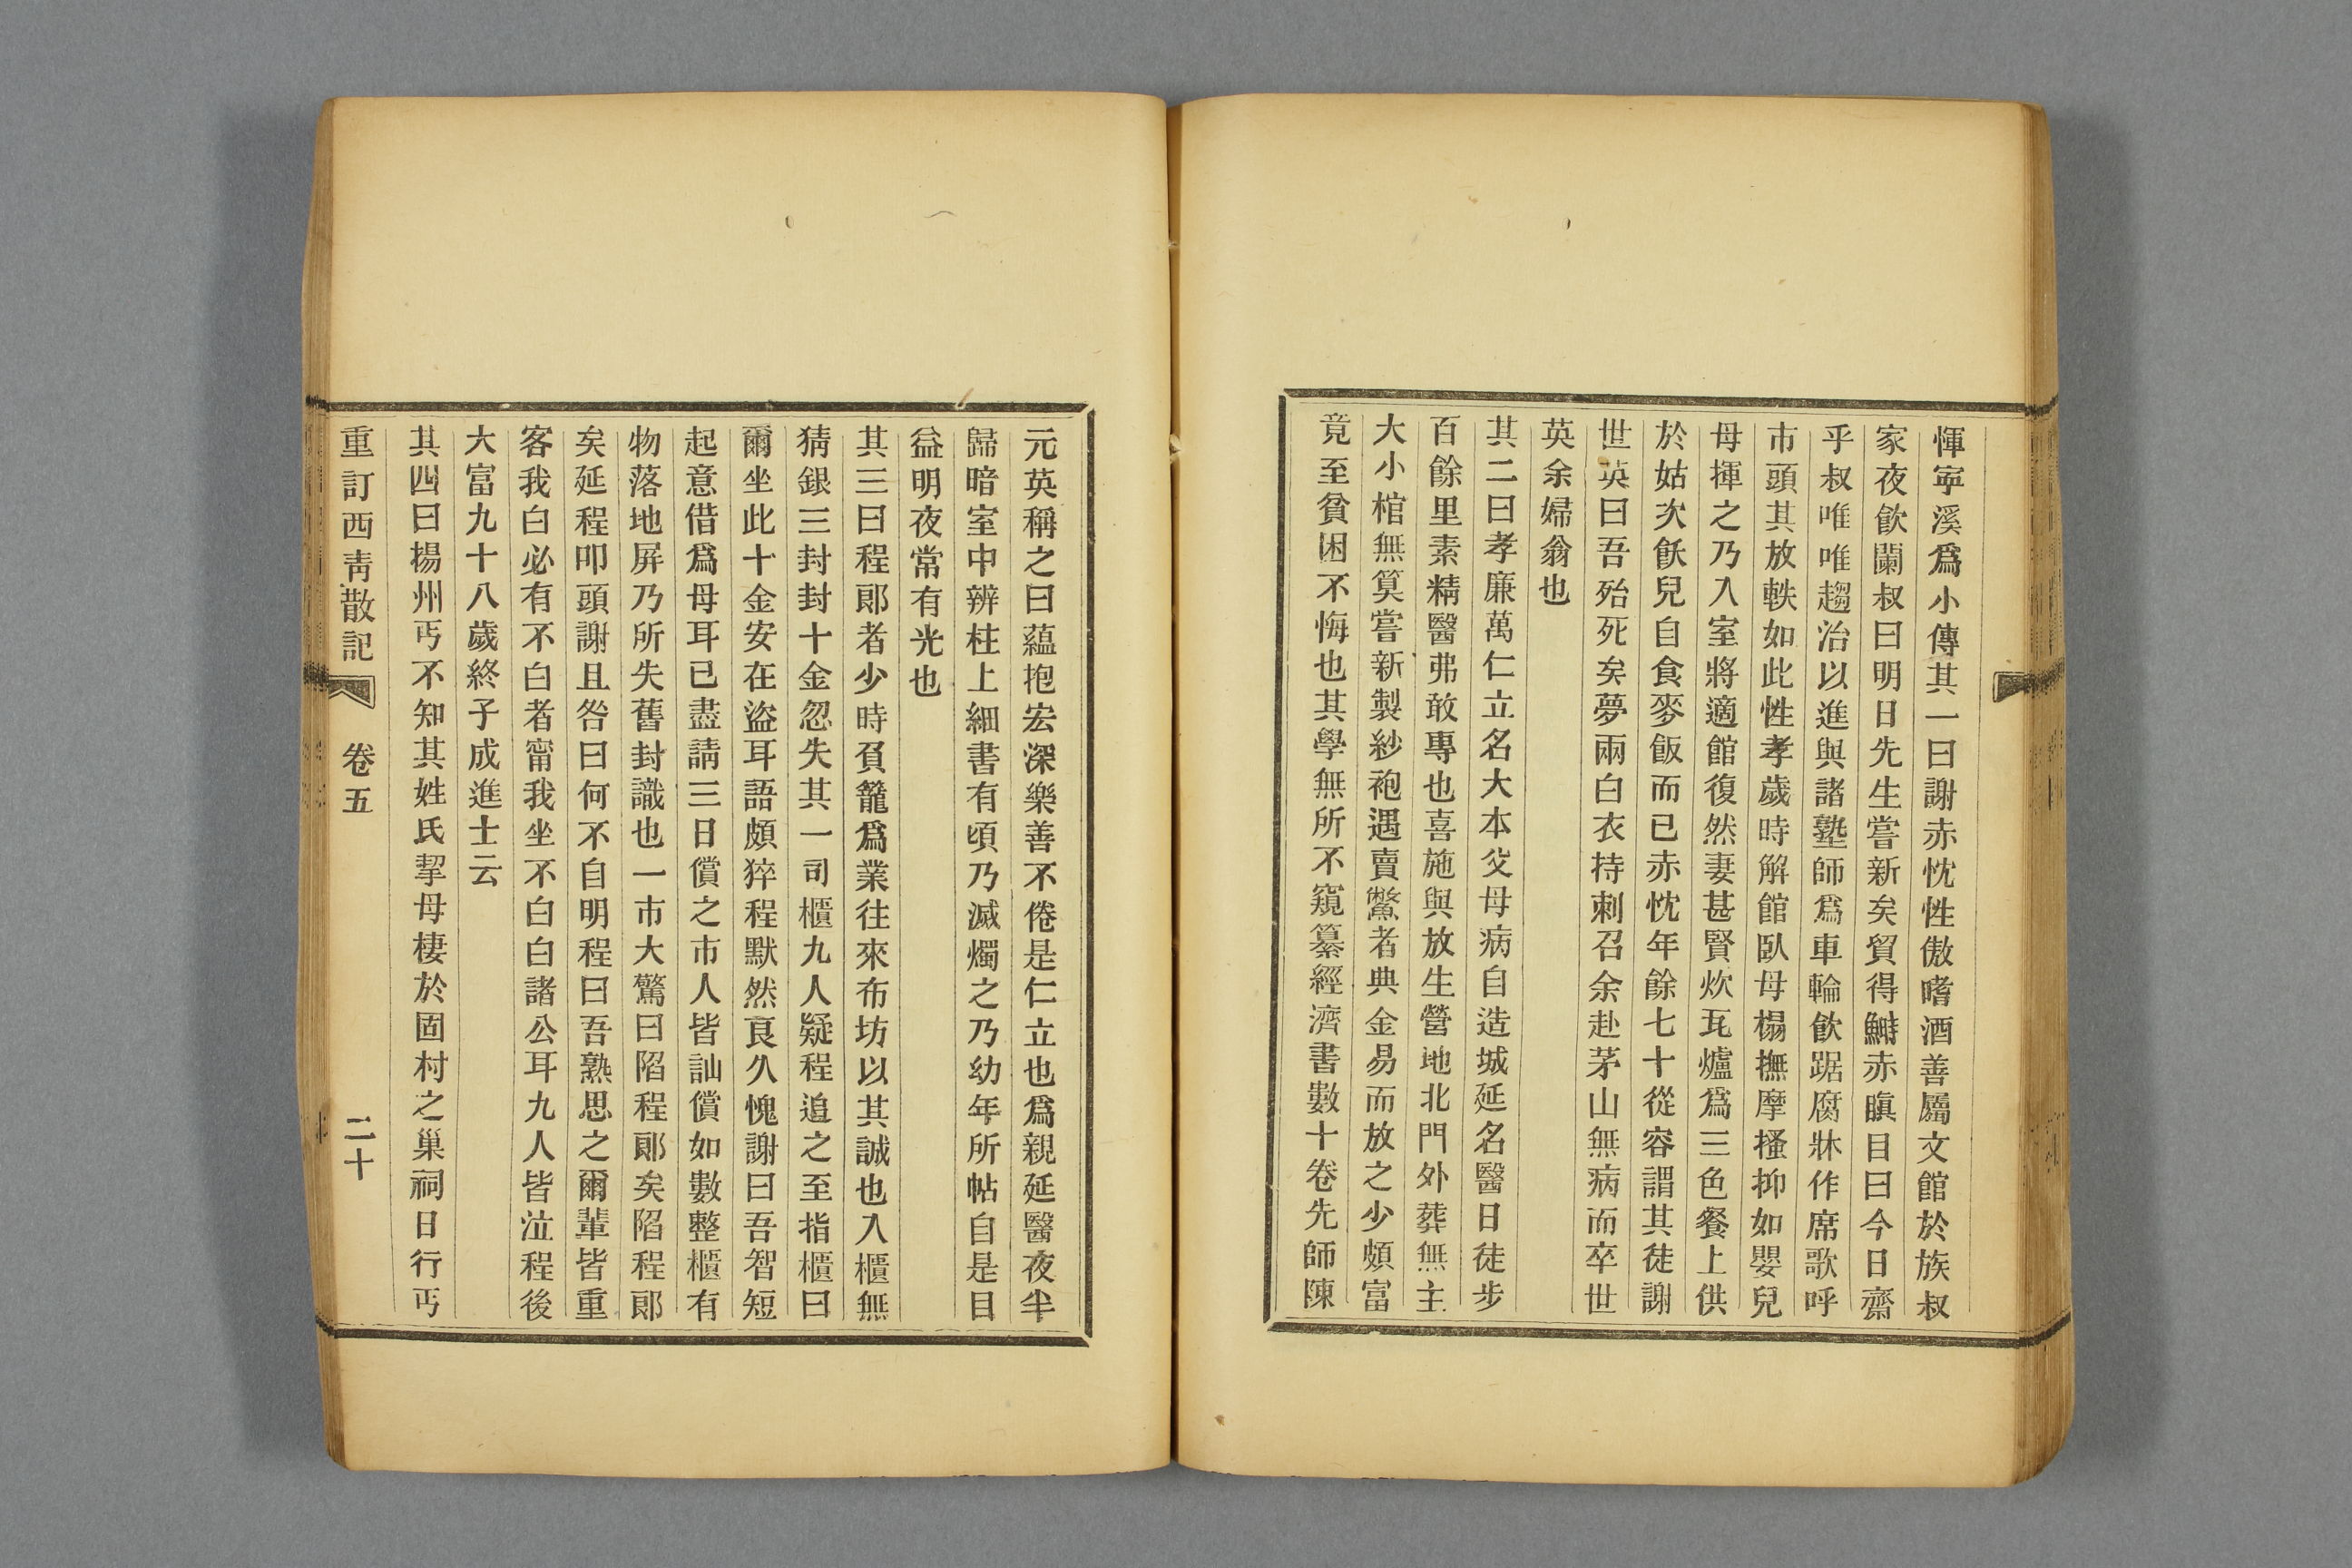 惲寧溪爲小傳其一曰謝赤忱性傲嗜酒善屬文館於族叔
家夜飮闌叔曰明日先生嘗新矣貿得鰣赤瞋目曰今日齋
乎叔唯唯趨治以進與諸塾師爲車輪飮踞腐牀作席歌呼
市頭其放軼如此性孝歲時解館臥母榻撫摩搔抑如嬰兒
母揮之乃入室將適館復然妻甚賢炊瓦爐爲三色餐上供
於姑次飫兒自食麥飯而已赤忱年餘七十從容謂其徒謝
世英曰吾殆死矣夢兩白衣持刺召余赴茅山無病而卒世
英余婦翁也
其二曰孝廉萬仁立名大本父母病自造城延名醫日徒步
百餘里素精醫弗敢專也喜施與放生營地北門外葬無主
大小棺無筭嘗新製紗袍遇賣鱉者典金易而放之少頗富
竟至貧困不悔也其學無所不窺纂經濟書數十卷先師陳
元英稱之曰蘊抱宏深樂善不倦是仁立也爲親延醫夜半
歸暗室中辨柱上細書有頃乃滅燭之乃幼年所帖自是目
益明夜常有光也
其三曰程郞者少時負籠爲業往來布坊以其誠也入櫃無
猜銀三封封十金忽失其一司櫃九人疑程追之至指櫃曰
爾坐此十金安在盜耳語頗猝程默然良久愧謝曰吾智短
起意借爲母耳已盡請三日償之市人皆訕償如數整櫃有
物落地屏乃所失舊封識也一市大驚曰陷程郞矣陷程郞
矣延程叩頭謝且咎曰何不自明程曰吾熟思之爾輩皆重
客我白必有不白者甯我坐不白白諸公耳九人皆泣程後
大富九十八歲終子成進士云
其四曰揚州丐不知其姓氏挈母棲於固村之巢祠日行丐
重訂西靑散記 卷五 二十